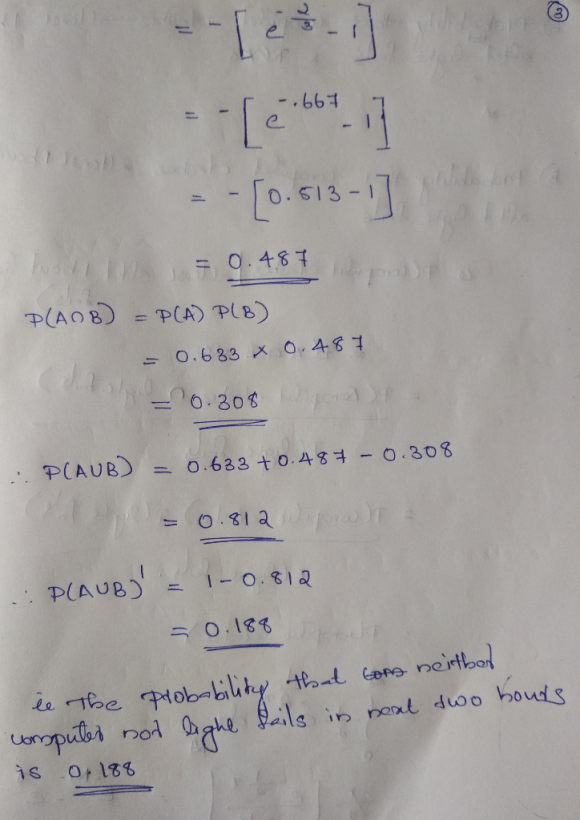 3
= - [ e^{-2/3} - 1 ]
= - [ e^{-.667} - 1 ]
= - [ 0.513 - 1 ]
= 0.487
P(A∩B) = P(A) P(B)
= 0.633 × 0.487
= 0.308
∴ P(A∪B) = 0.633 + 0.487 - 0.308
= 0.812
∴ P(A∪B)' = 1 - 0.812
= 0.188
ie The probability that neither
computer nor light fails in next two hours
is 0.188